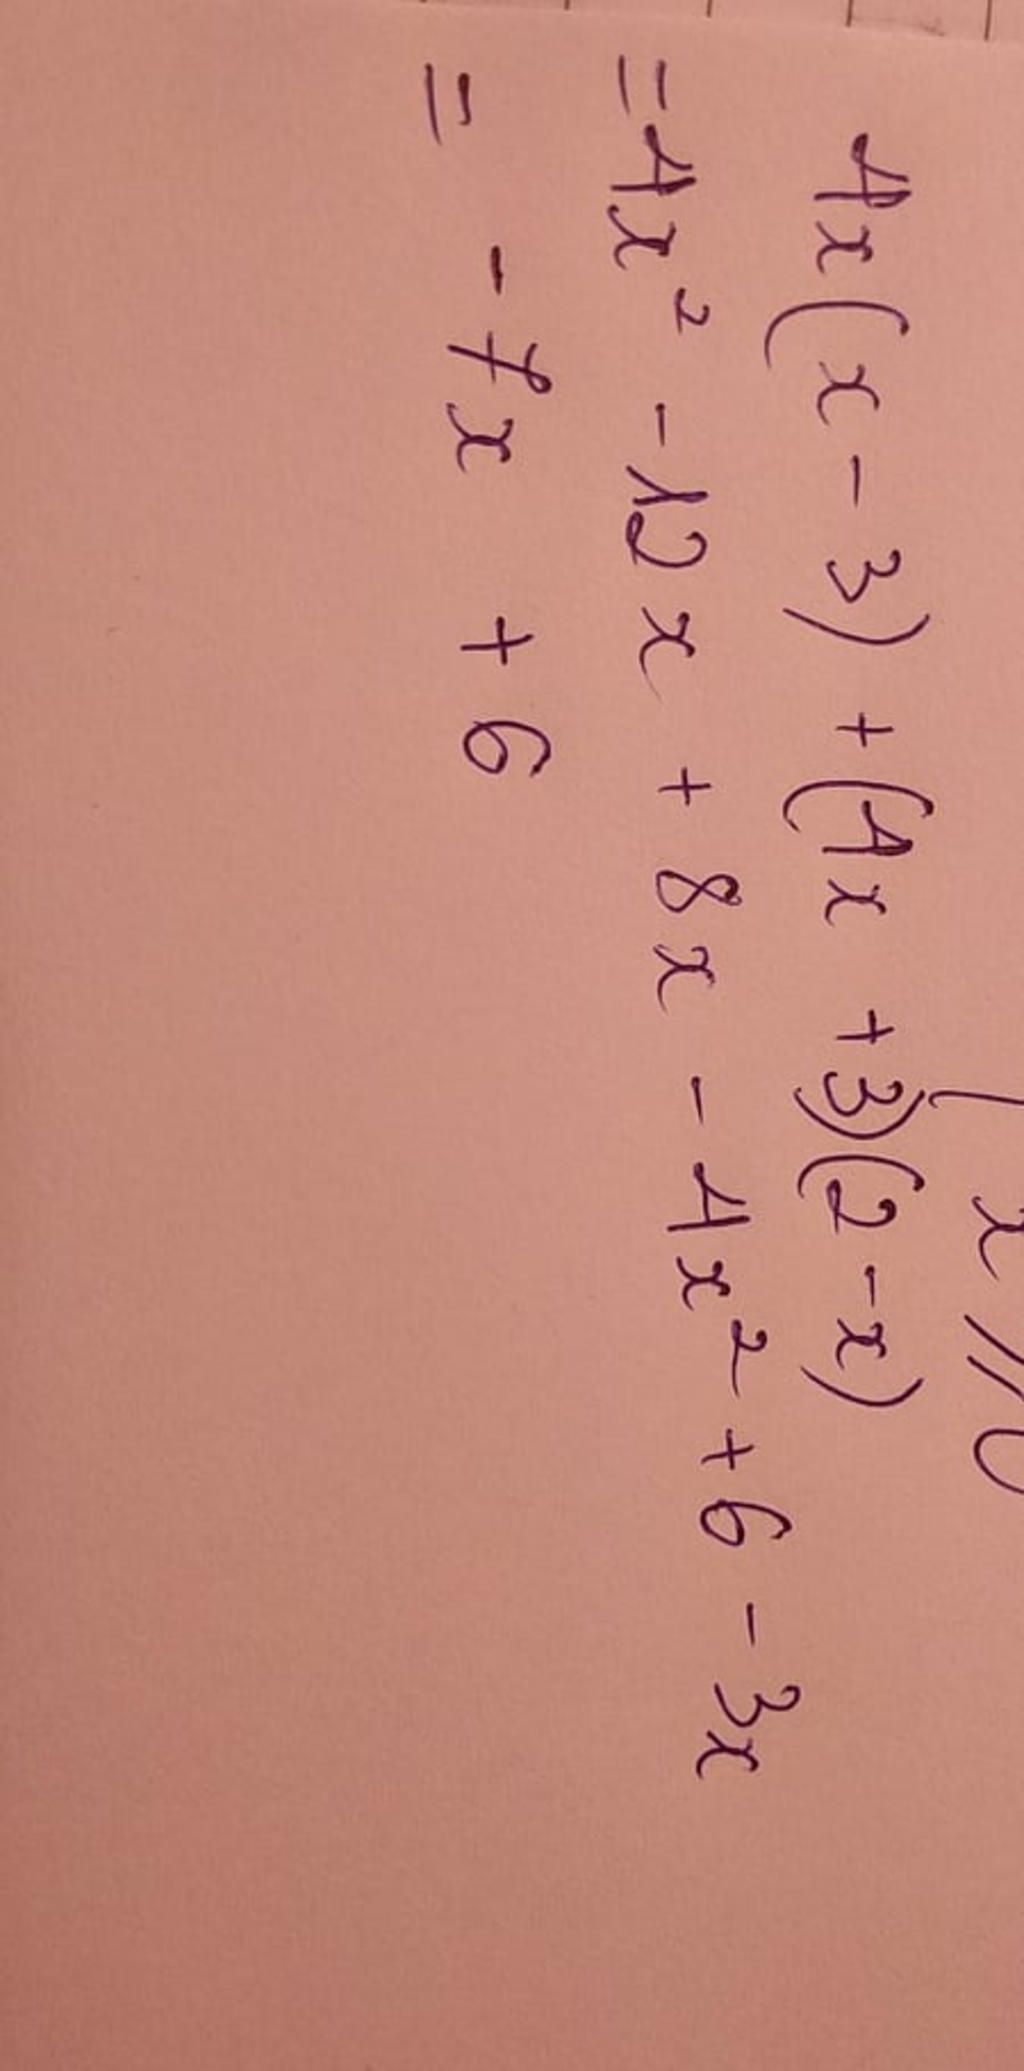 x ⩾ 0
4x(x - 3) + (4x + 3)(2 - x)
= 4x² - 12x + 8x - 4x² + 6 - 3x
= - 7x + 6